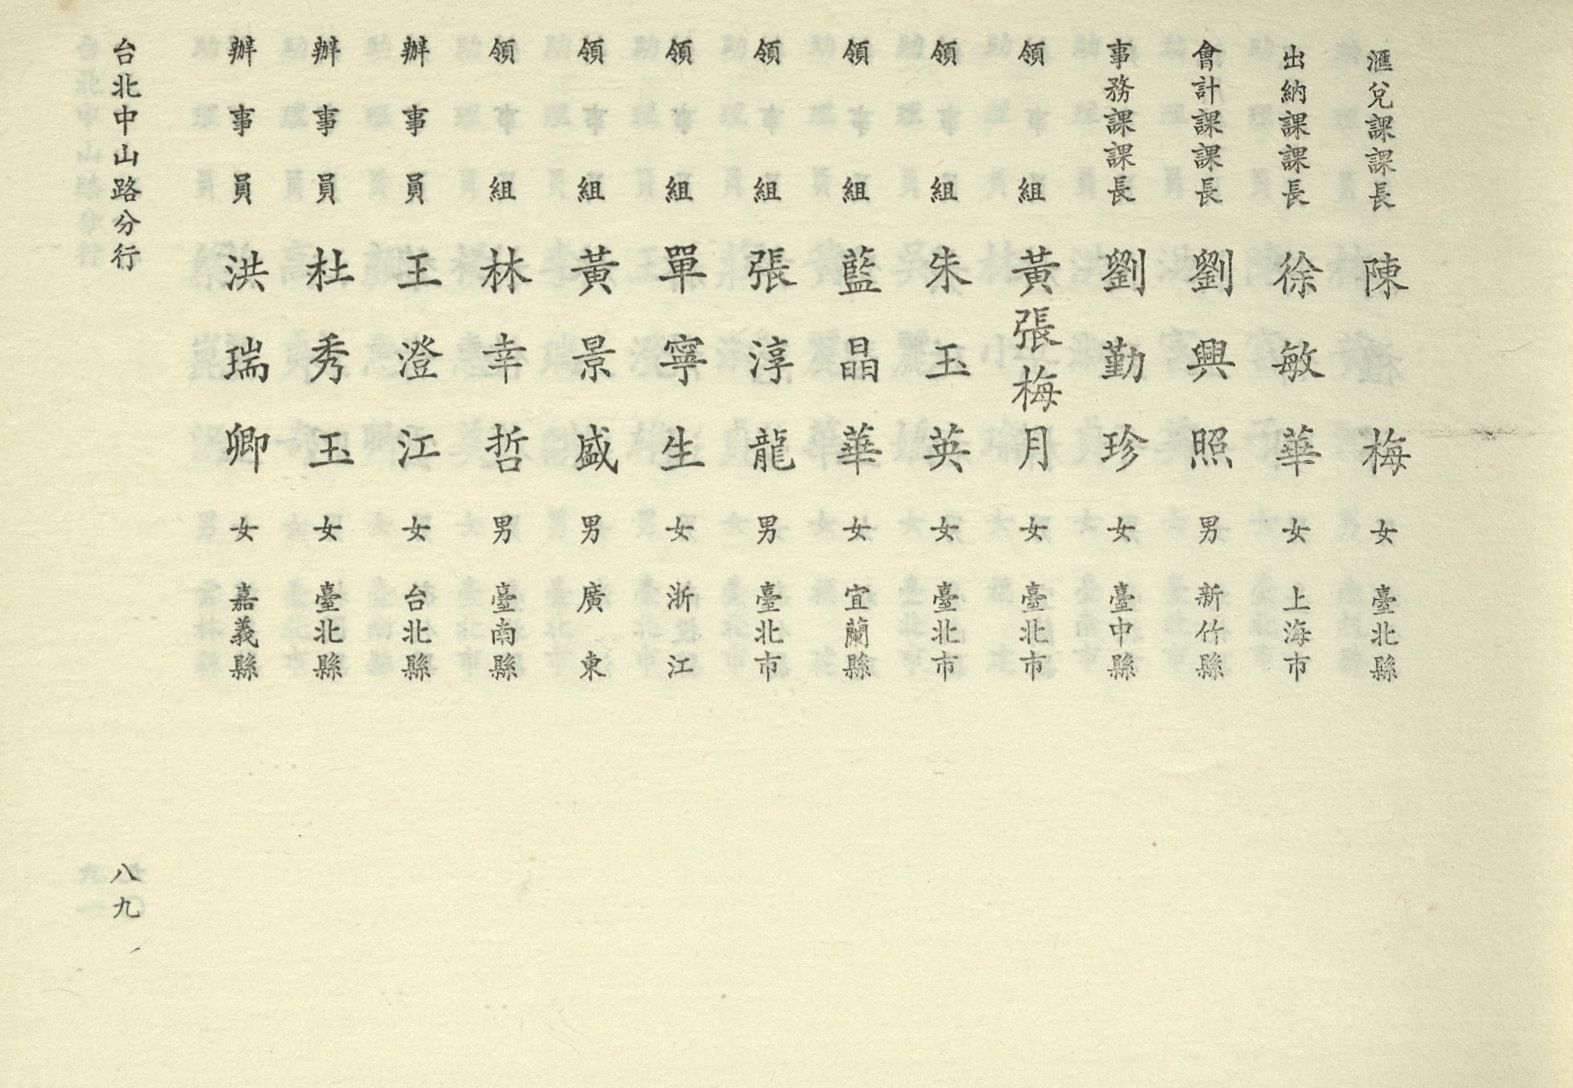 滙兌課課長 陳梅 女 臺北縣
出納課課長 徐敏華 女 上海市
會計課課長 劉興照 男 新竹縣
事務課課長 劉勤珍 女 臺中縣
領組 黃張梅月 女 臺北市
領組 朱玉英 女 臺北市
領組 藍晶華 女 宜蘭縣
領組 張淳龍 男 臺北市
領組 單寧生 女 浙江
領組 黃景盛 男 廣東
領組 林幸哲 男 臺南縣
辦事員 王澄江 女 台北縣
辦事員 杜秀玉 女 臺北縣
辦事員 洪瑞卿 女 嘉義縣
台北中山路分行 八九